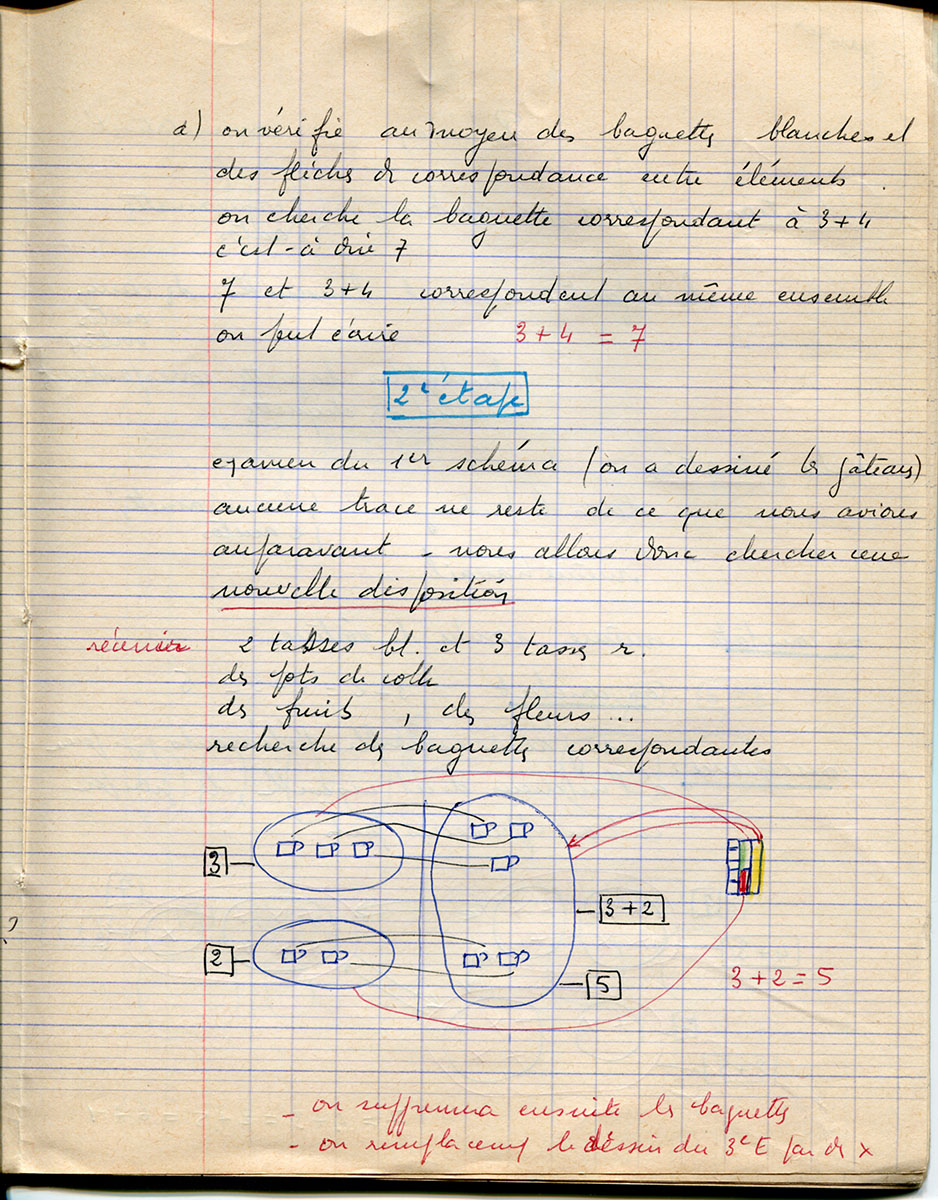 a) on vérifie au moyen des baguettes blanches et
des flèches de correspondance entre éléments.
on cherche la baguette correspondant à 3+4
c'est-à dire 7
7 et 3+4 correspondent au même ensemble
on peut écrire 3+4 = 7
2e étape
examen du 1er schéma (on a dessiné les gâteaux)
aucune trace ne reste de ce que nous avions
auparavant - nous allons donc chercher une
nouvelle disposition
réunir 2 tasses bl. et 3 tasses r.
des pots de colle
des fruits, des fleurs...
recherche des baguettes correspondantes
3
3+2
2
5
3+2=5
- on supprimera ensuite les baguettes
- on remplacera le dessin du 3e E par des x